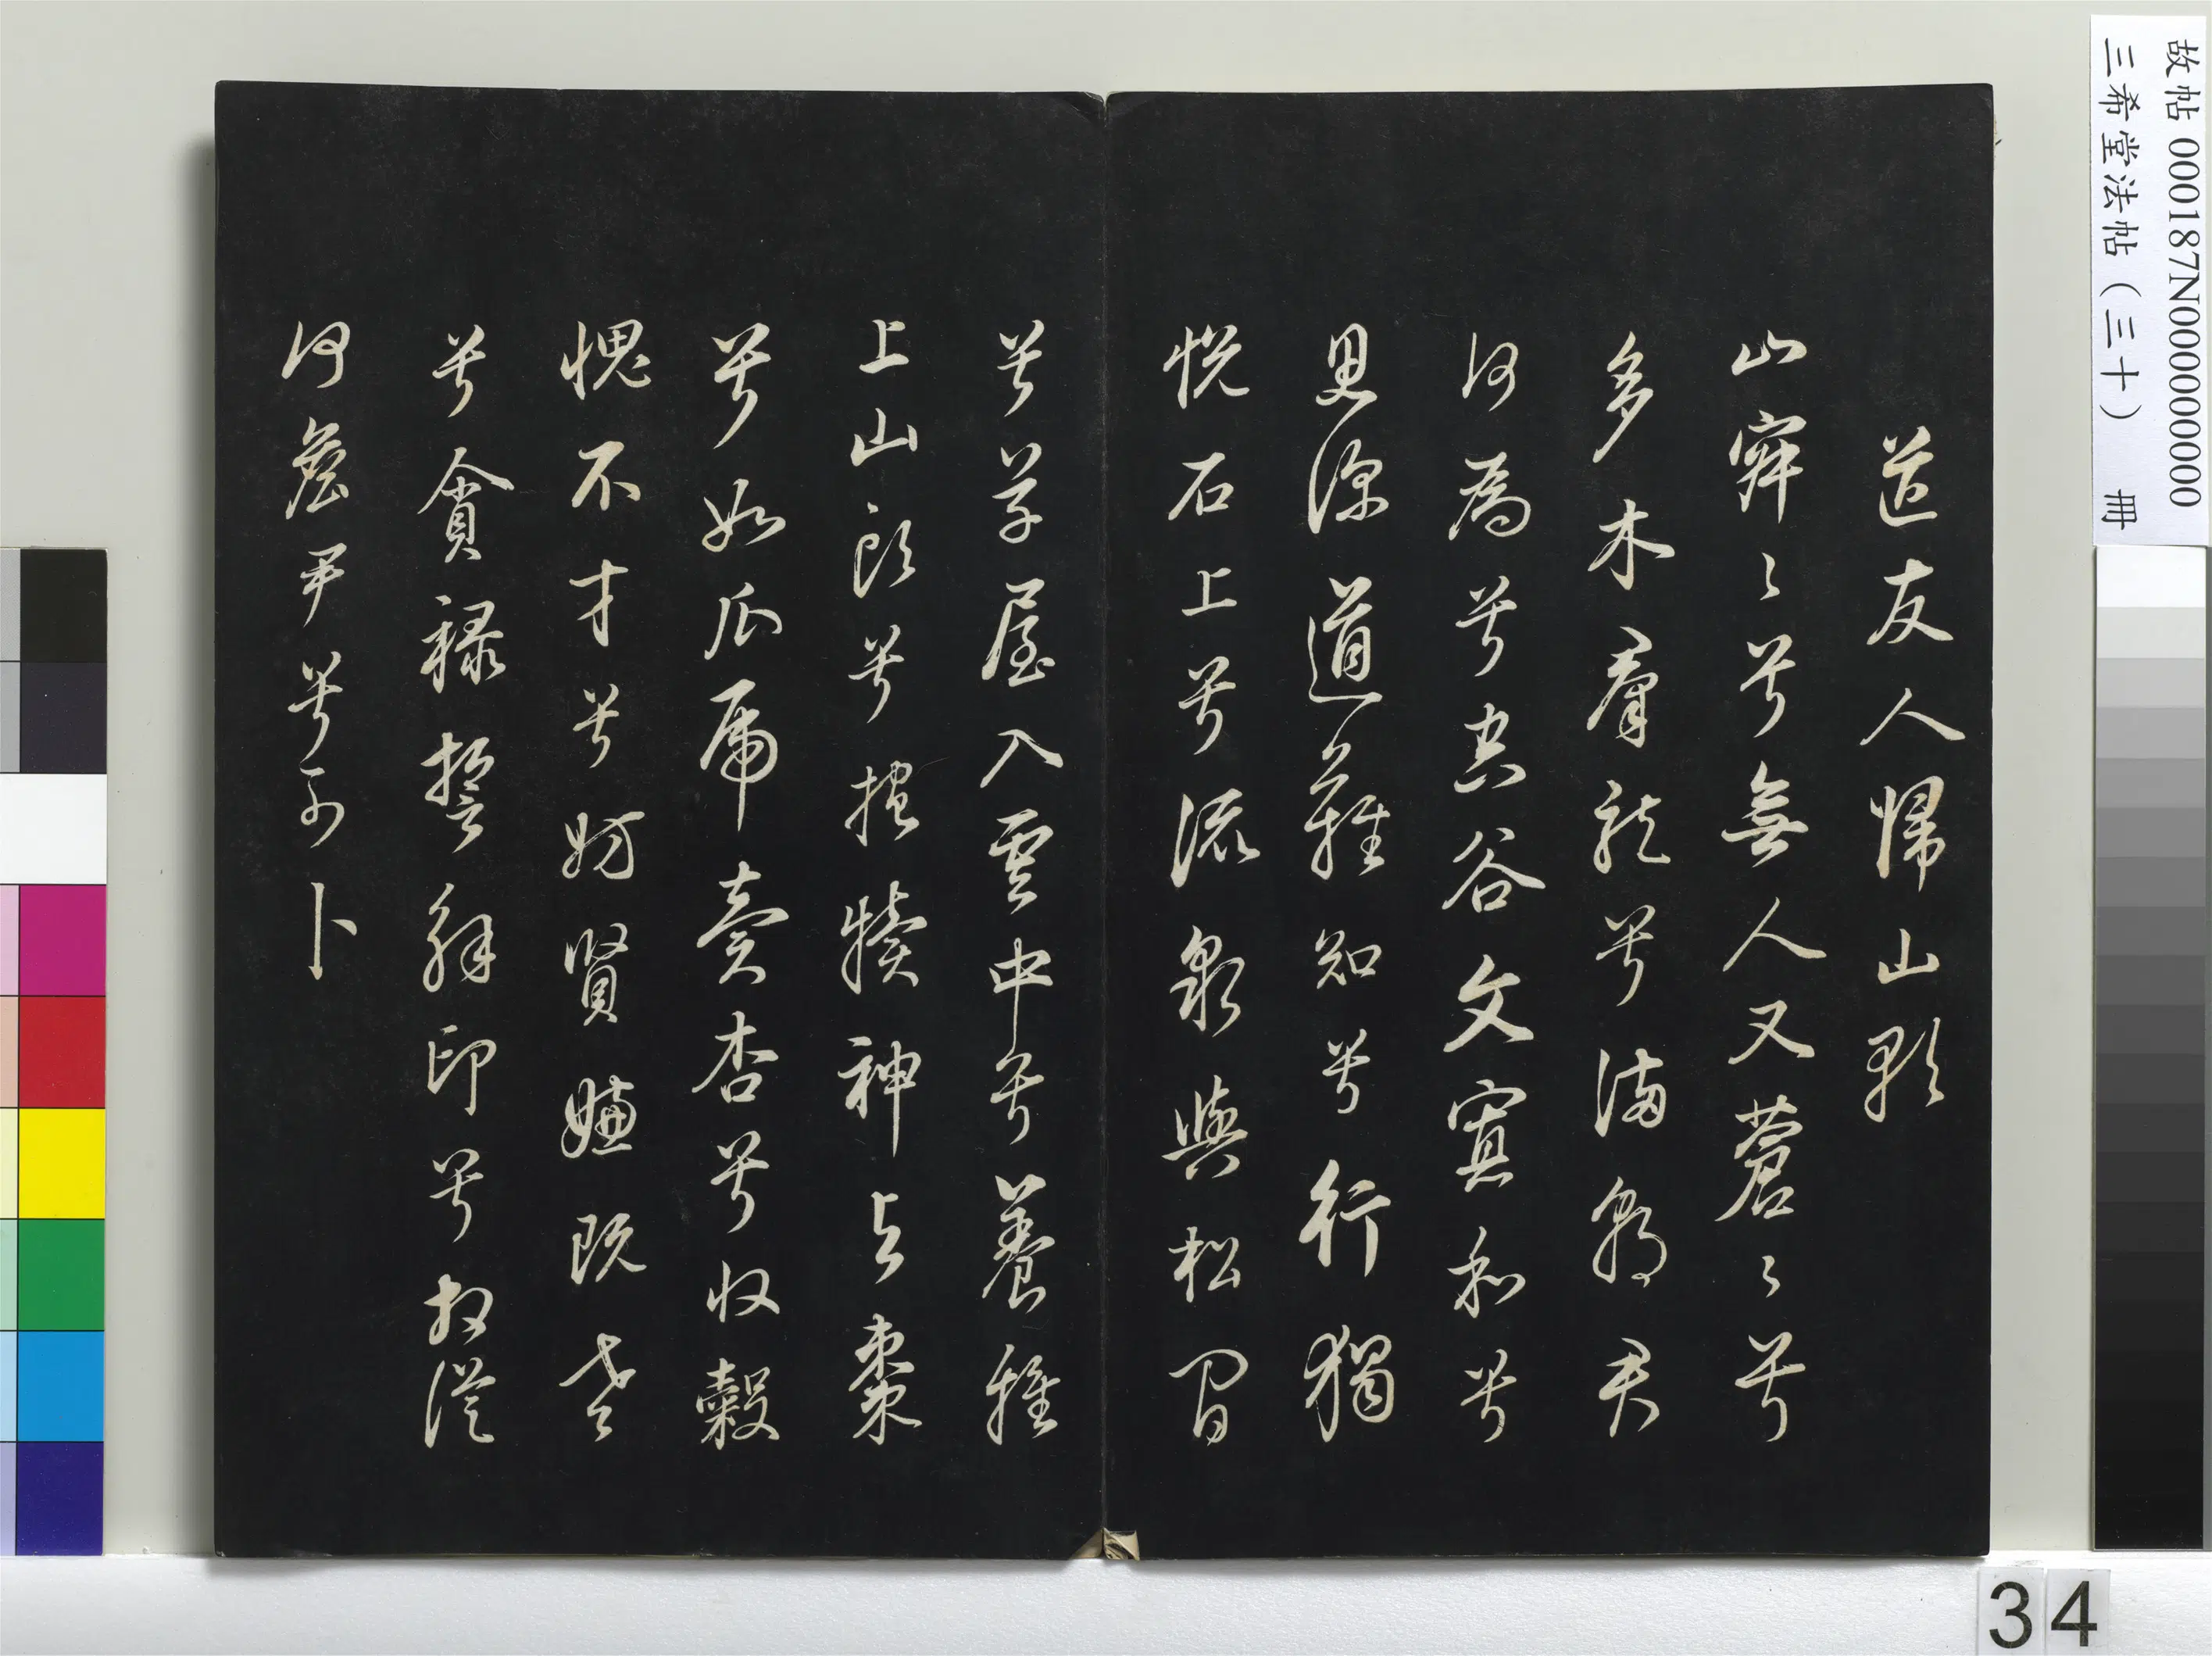 故帖 000187N000000000
三希堂法帖（三十） 冊
送友人歸山歌
山寂〻兮無人又蒼〻兮
多木羣龍兮滿朝君
何為兮空谷文寡和兮
思深道難知兮行獨
悅石上兮流泉與松間
兮草屋入雲中兮養雞
上山頭兮抱犢神与棗
兮如瓜虎賣杏兮收穀
愧不才兮妨賢嫌既老
兮貪祿誓解印兮相從
何詹尹兮可卜
34